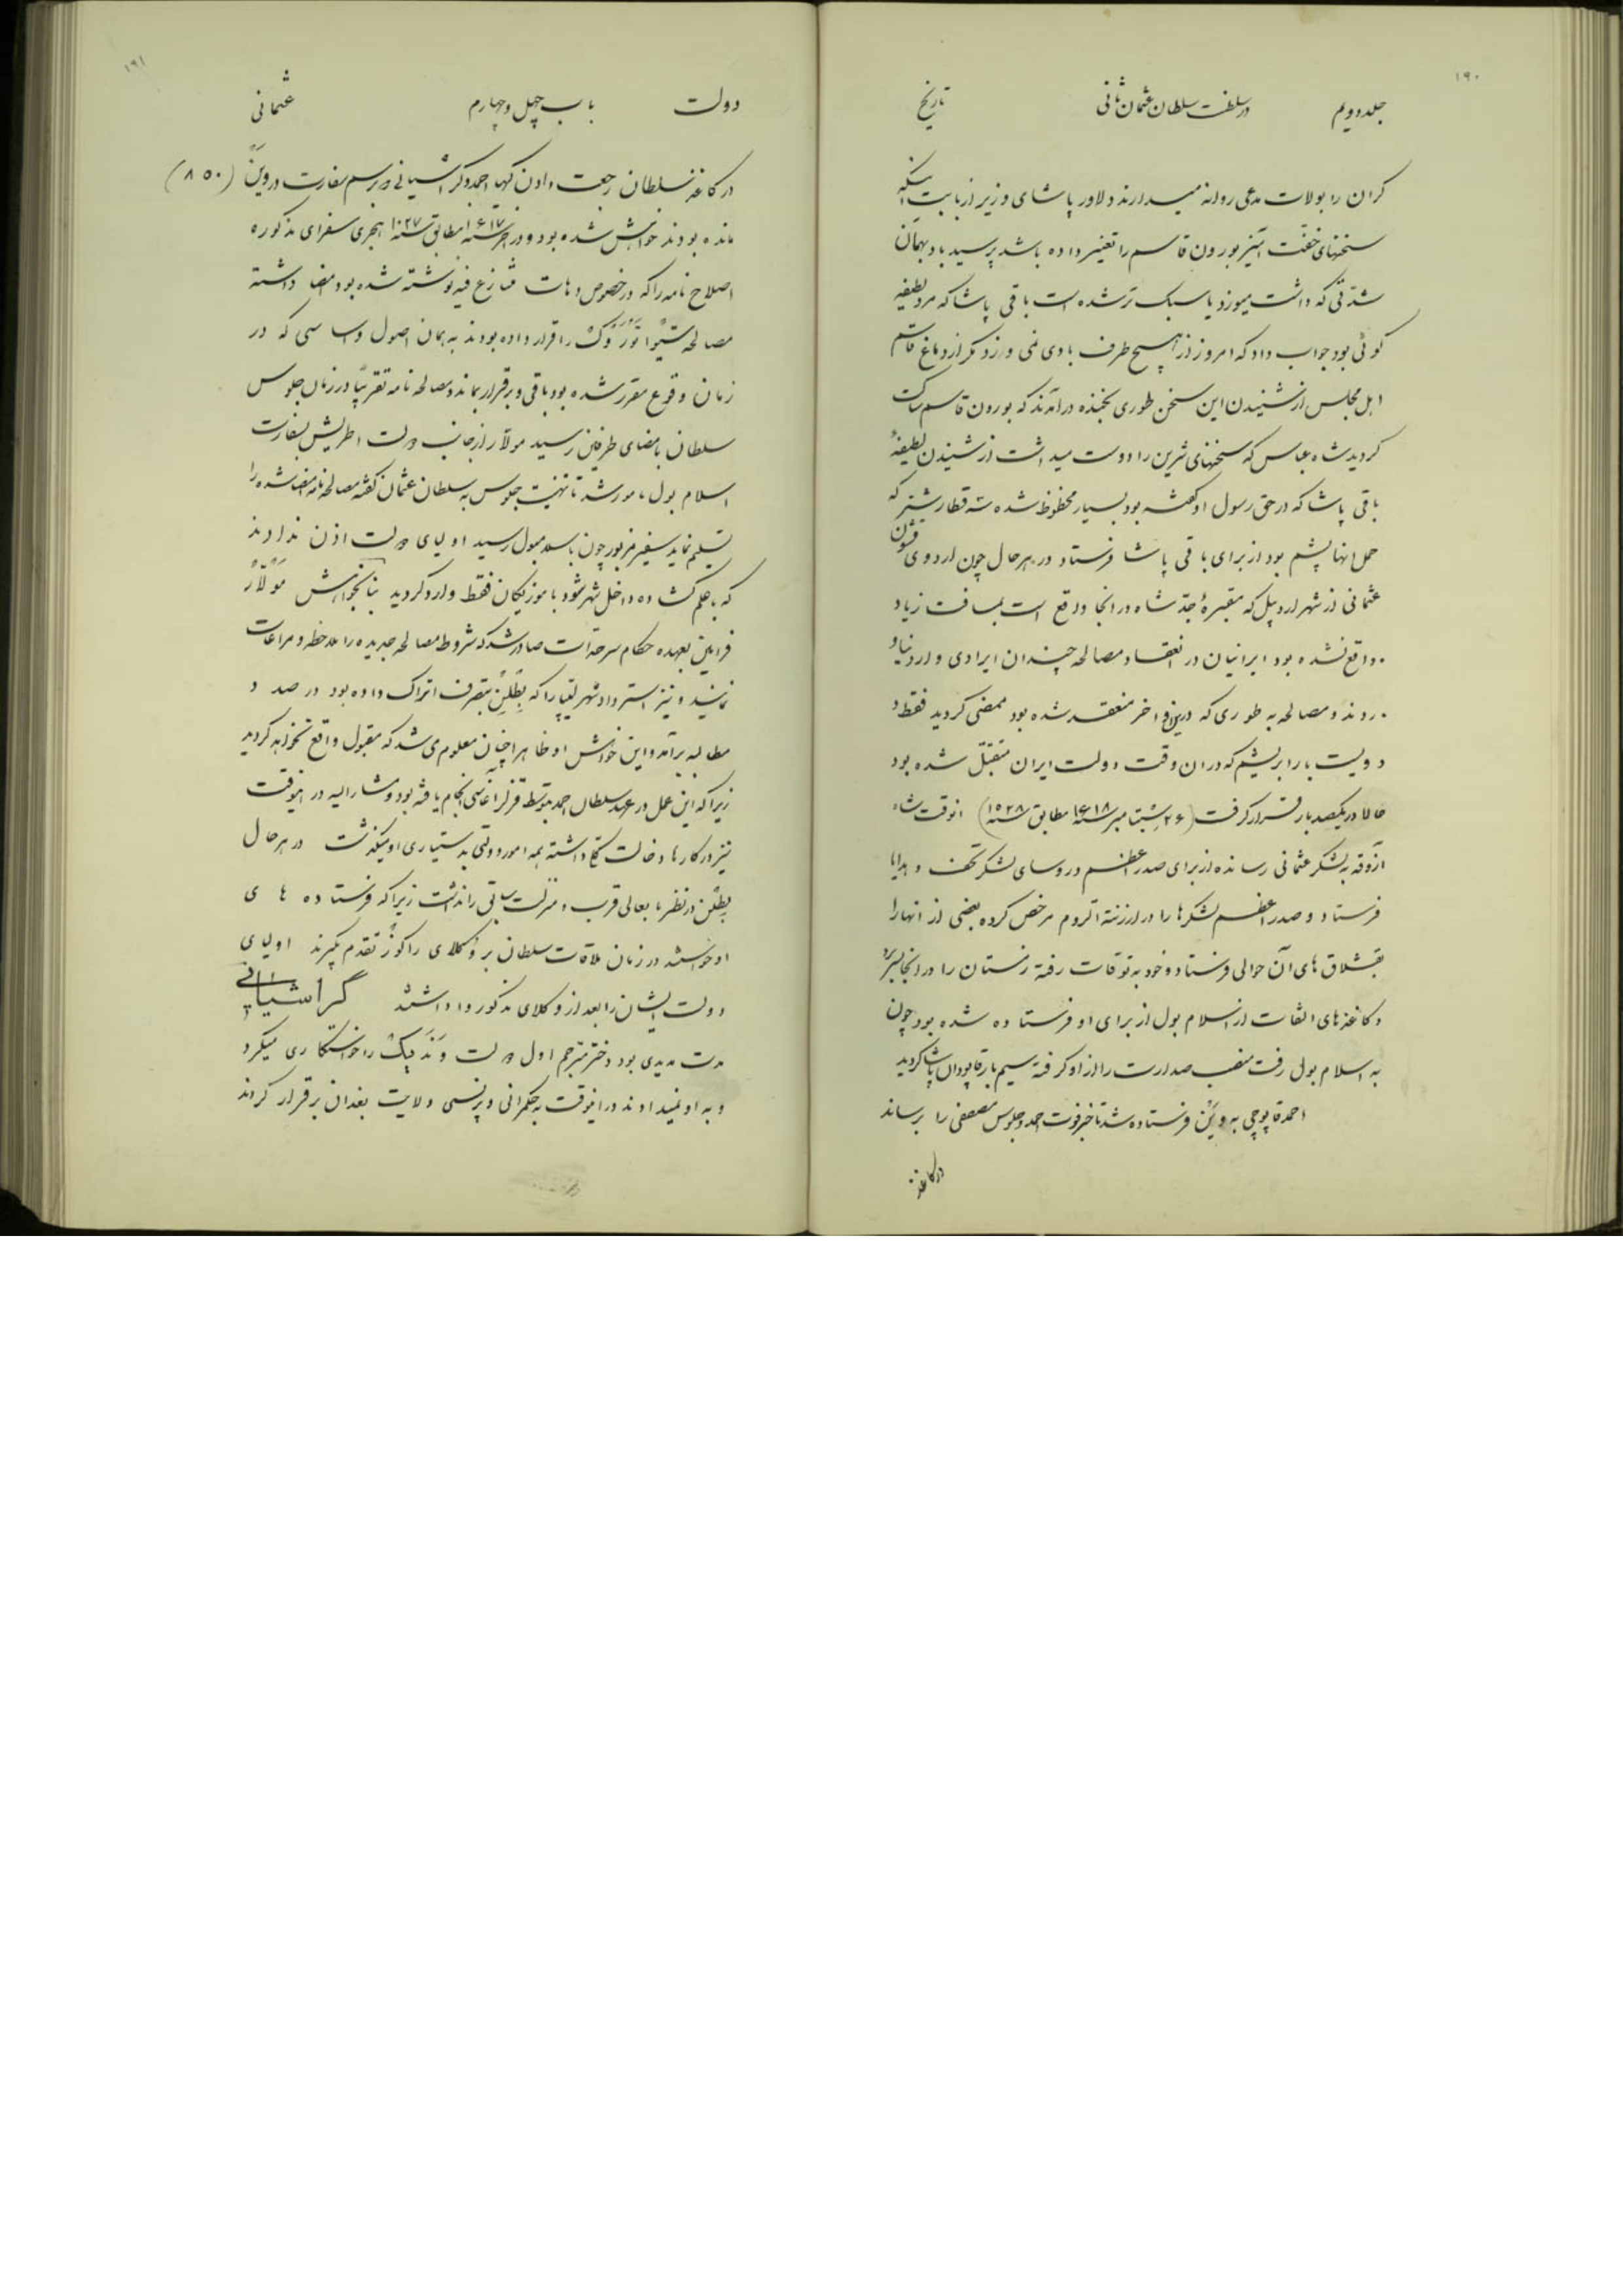 ۱۹۰
جلد دویم در سلطنت سلطان عثمان ثانی تاریخ
کران را بولات مدعی روانه میدارند دلاور پاشای وزیر از بابت اینکه
سخنهای خفّت آمیز بورون قاسم را تغییر داده باشد پرسید باد بهمان
شدّتی که داشت میوزد یا سبک تر شده است باقی پاشا که مرد لطیفه
کوئی بود جواب داد که امروز از هیچ طرف بادی نمی وزد مکر از دماغ قاسم
اهل مجلس از شنیدن این سخن طوری بخنده درآمدند که بورون قاسم ساکت
کردید شاه عباس که سخنهای شیرین را دوست میداشت از شنیدن لطیفهٔ
باقی پاشا که در حق رسول او کفته بود بسیار محظوظ شده سه قطار شتر که
حمل انها پشم بود از برای باقی پاشا فرستاد در هر حال چون اردوی قشون
عثمانی از شهر اردبیل که مقبرهٔ جدّ شاه در انجا واقع است بمسافت زیاد
واقع نشده بود ایرانیان در انعقاد مصالحه چندان ایرادی وارد نیا
وردند و مصالحه به طوری که در این اواخر منعقد شده بود ممضی کردید فقط
دویست بار ابریشم که در ان وقت دولت ایران متقبّل شده بود
حالا در یکصد بار قرار کرفت (۲۶ سپتامبر سنه ۱۶۱۸ مطابق سنه ۱۰۲۸) انوقت شاه
آزوقه به لشکر عثمانی رسانده از برای صدر اعظم و روسای لشکر تحف و هدایا
فرستاد و صدر اعظم لشکرها را در ارزنة الروم مرخص کرده بعضی از انها را
بقشلاق های آن حوالی فرستاد و خود به توقات رفته زمستان را در انجا بسر برد
و کاغذهای التفات از اسلام بول از برای او فرستاده شده بود چون
به اسلام بول رفت منصب صدارت را از او کرفته سیم بار قاپودان پاشا کردید
احمد قاپوچی به وین فرستاده شد تا خبر فوت احمد و جلوس مصطفی را برساند
در کاغذ
۱۹۱
دولت باب چهل و چهارم عثمانی
در کاغذ سلطان رجعت دادن کهیا احمد و کراشیانی که برسم سفارت در وین (۸۵۰)
مانده بودند خواهش شده بود و در اخر سنه ۱۶۱۷ مطابق سنه ۱۰۲۷ هجری سفرای مذکوره
اصلاح نامه را که در خصوص دهات متنازع فیه نوشته شده بود امضا داشته
مصالحه سیتوا توروک را قرار داده بودند به همان اصول و اساسی که در
زمان وقوع مقرر شده بود باقی و برقرار بماند و مصالحه نامه تقریباً در زمان جلوس
سلطان بامضای طرفین رسید مولار از جانب دولت اطریش بسفارت
اسلام بول مامور شد تا تهنیت جلوس به سلطان عثمان کفته مصالحه نامه امضا شده را
تسلیم نماید سفیر مزبور چون باسلامبول رسید اولیای دولت اذن ندادند
که با علم کشاده داخل شهر شود با موزیکان فقط وارد کردید بنا بخواهش مولار
فرامین بعهده حکام سرحدات صادر شد که شروط مصالحه جدیده را ملاحظه و مراعات
نمایند و نیز استرداد شهر لیپا را که بطلن بتصرف اتراک داده بود در صدد
مطالبه برآمد و این خواهش او ظاهراً چنان معلوم می شد که مقبول واقع نخواهد کردید
زیرا که این عمل در عهد سلطان احمد بتوسط قزلر اغاسی انجام یافته بود و مشارالیه در اینوقت
نیز در کارها دخالت کلی داشته همه امور دولتی بدستیاری او میکذشت در هر حال
بطلن در نظر بابعالی قرب و منزلت سابق را نداشت زیرا که فرستاده های
او خواستند در زمان ملاقات سلطان بر وکلای راکوز تقدم بکیرند اولیای
دولت ایشان را بعد از وکلای مذکور واداشتند گراشیانی
مدت مدیدی بود دختر مترجم اول دولت وندیک را خواستکاری میکرد
و به او نمیدادند در اینوقت به حکمرانی و پرنسی ولایت بغدان برقرار کردند